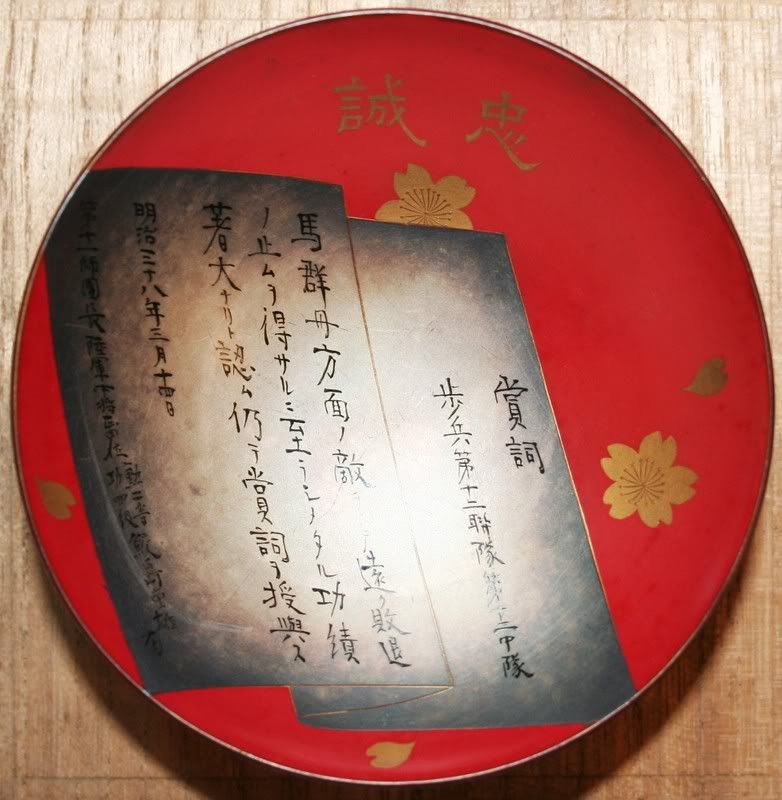 忠誠
賞詞
歩兵第十二聯隊第中隊
馬群丹方面ノ敵ヲシテ遠ク敗退
ノ止ムヲ得サルニ至ラシメタル功績
著大ナリト認ム仍テ賞詞ヲ授與ス
明治三十八年三月十四日
第十一師團長陸軍中將勲二等功四級鮫島重雄